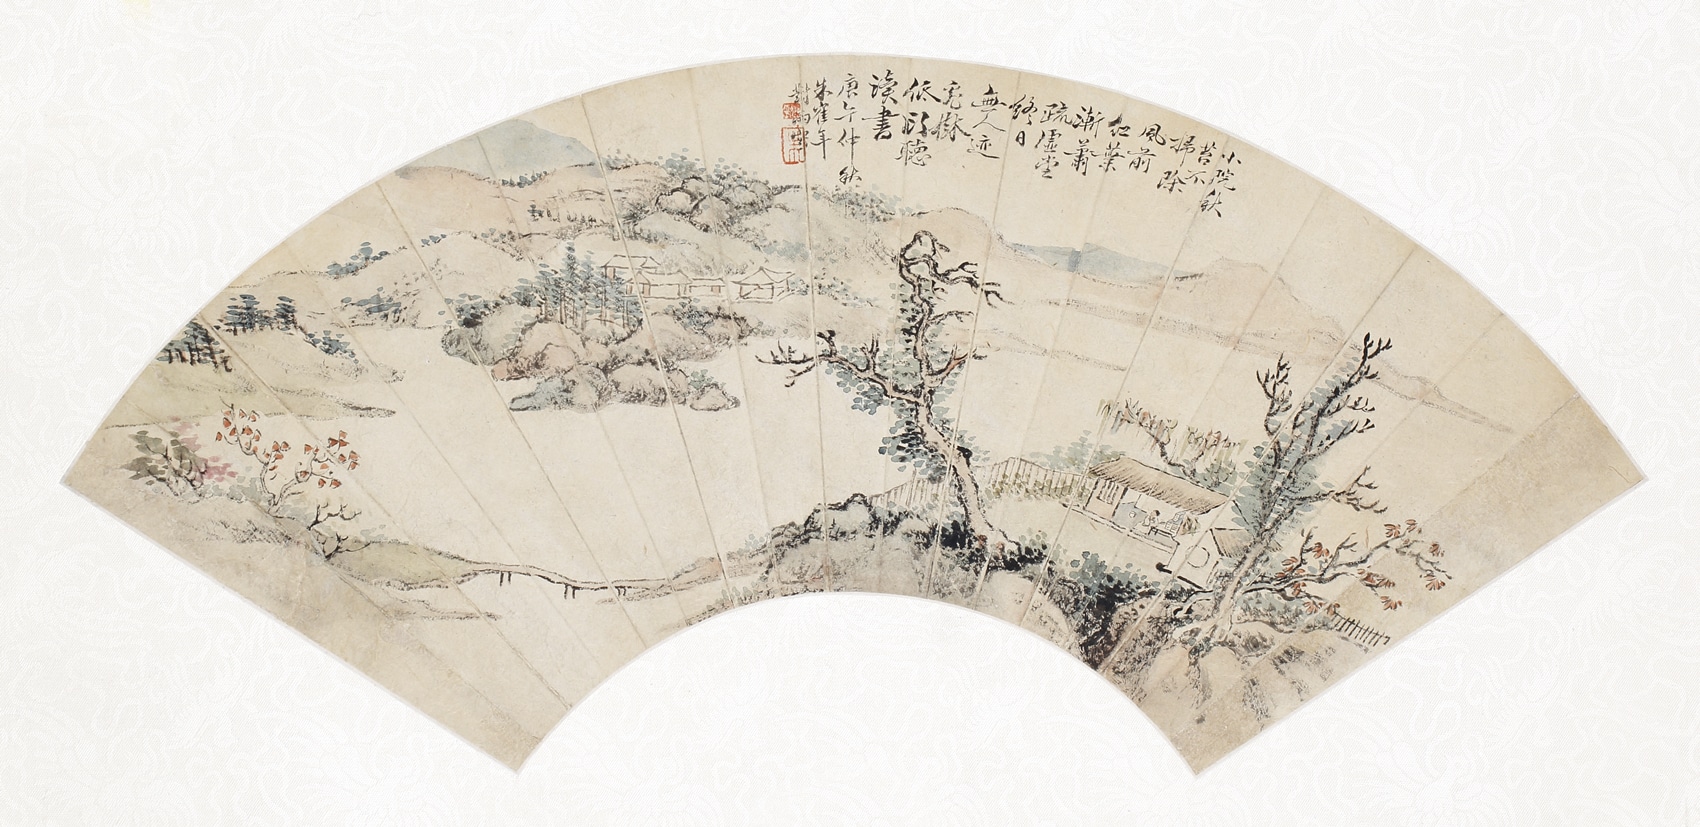 小院秋
苔不
掃除
風前
紅葉
漸蕭
疏虛堂
終日
無人迹
樹
低頭聽
讀書
庚午仲秋
朱隺年